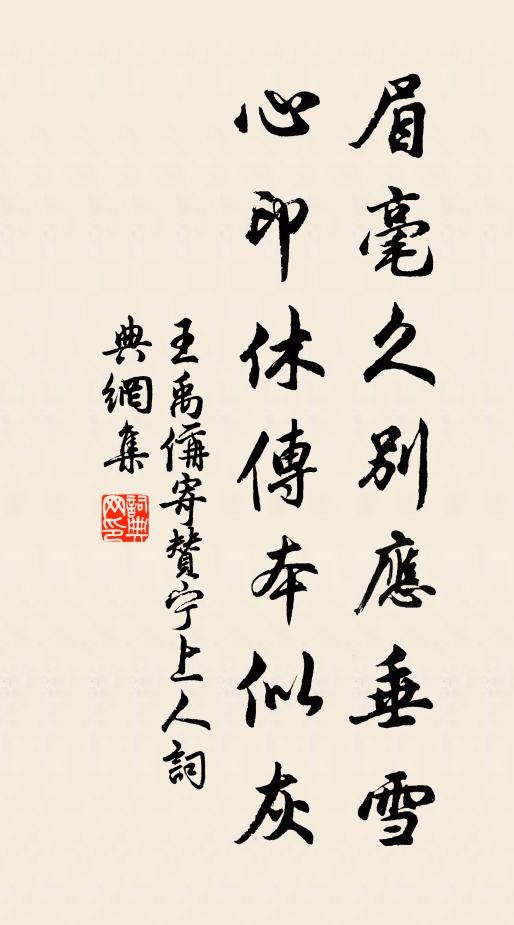 眉毫久別應垂雪
心印休傳本似灰
王禹偁寄贊宁上人詞
典網集
詞典
网印